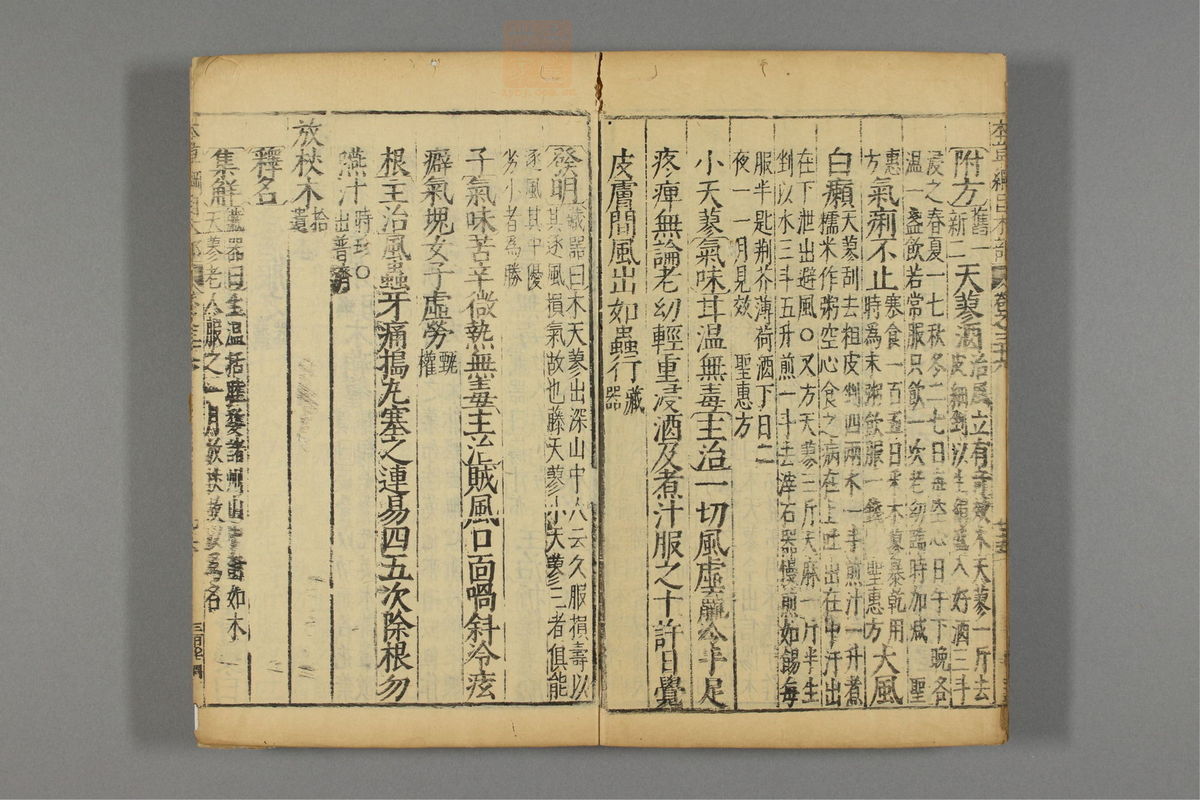 附方舊一新二天蓼酒治風立有奇效木天蓼一斤去
皮細剉以生絹盛入好酒二斗
浸之春夏一七秋冬二七日每空心日午下晚各
溫一盞飲若常服只飲一次老幼臨時加減 聖
惠方氣痢不止寒食一百五日采木蓼暴乾用
時爲末粥飲服一錢 聖惠方大風
白癩天蓼刮去粗皮剉四兩水一斗煎汁一升煮
糯米作粥空心食之病在上吐出在中汗出
在下泄出避風○又方天蓼三斤天麻一斤半生
剉以水三斗五升煎一斗去滓石器慢煎如餳每
服半匙荆芥薄荷酒下日二
夜一一月見效 聖惠方
小天蓼氣味甘溫無毒主治一切風虛羸冷手足
疼痺無論老幼輕重浸酒及煮汁服之十許日覺
皮膚間風出如蟲行藏器
發明藏器曰木天蓼出深山中人云久服損壽以
其逐風損氣故也藤天蓼小天蓼三者俱能
逐風其中優
劣小者爲勝
子氣味苦辛微熱無毒主治賊風口面喎斜冷痃
癖氣塊女子虛勞甄權
根主治風蟲牙痛搗丸塞之連易四五次除根勿
嚥汁時珍○出普濟
放杖木拾遺
釋名
集解藏器曰生溫括睦婺諸州山中樹如木
天蓼老人服之一月放杖故以爲名